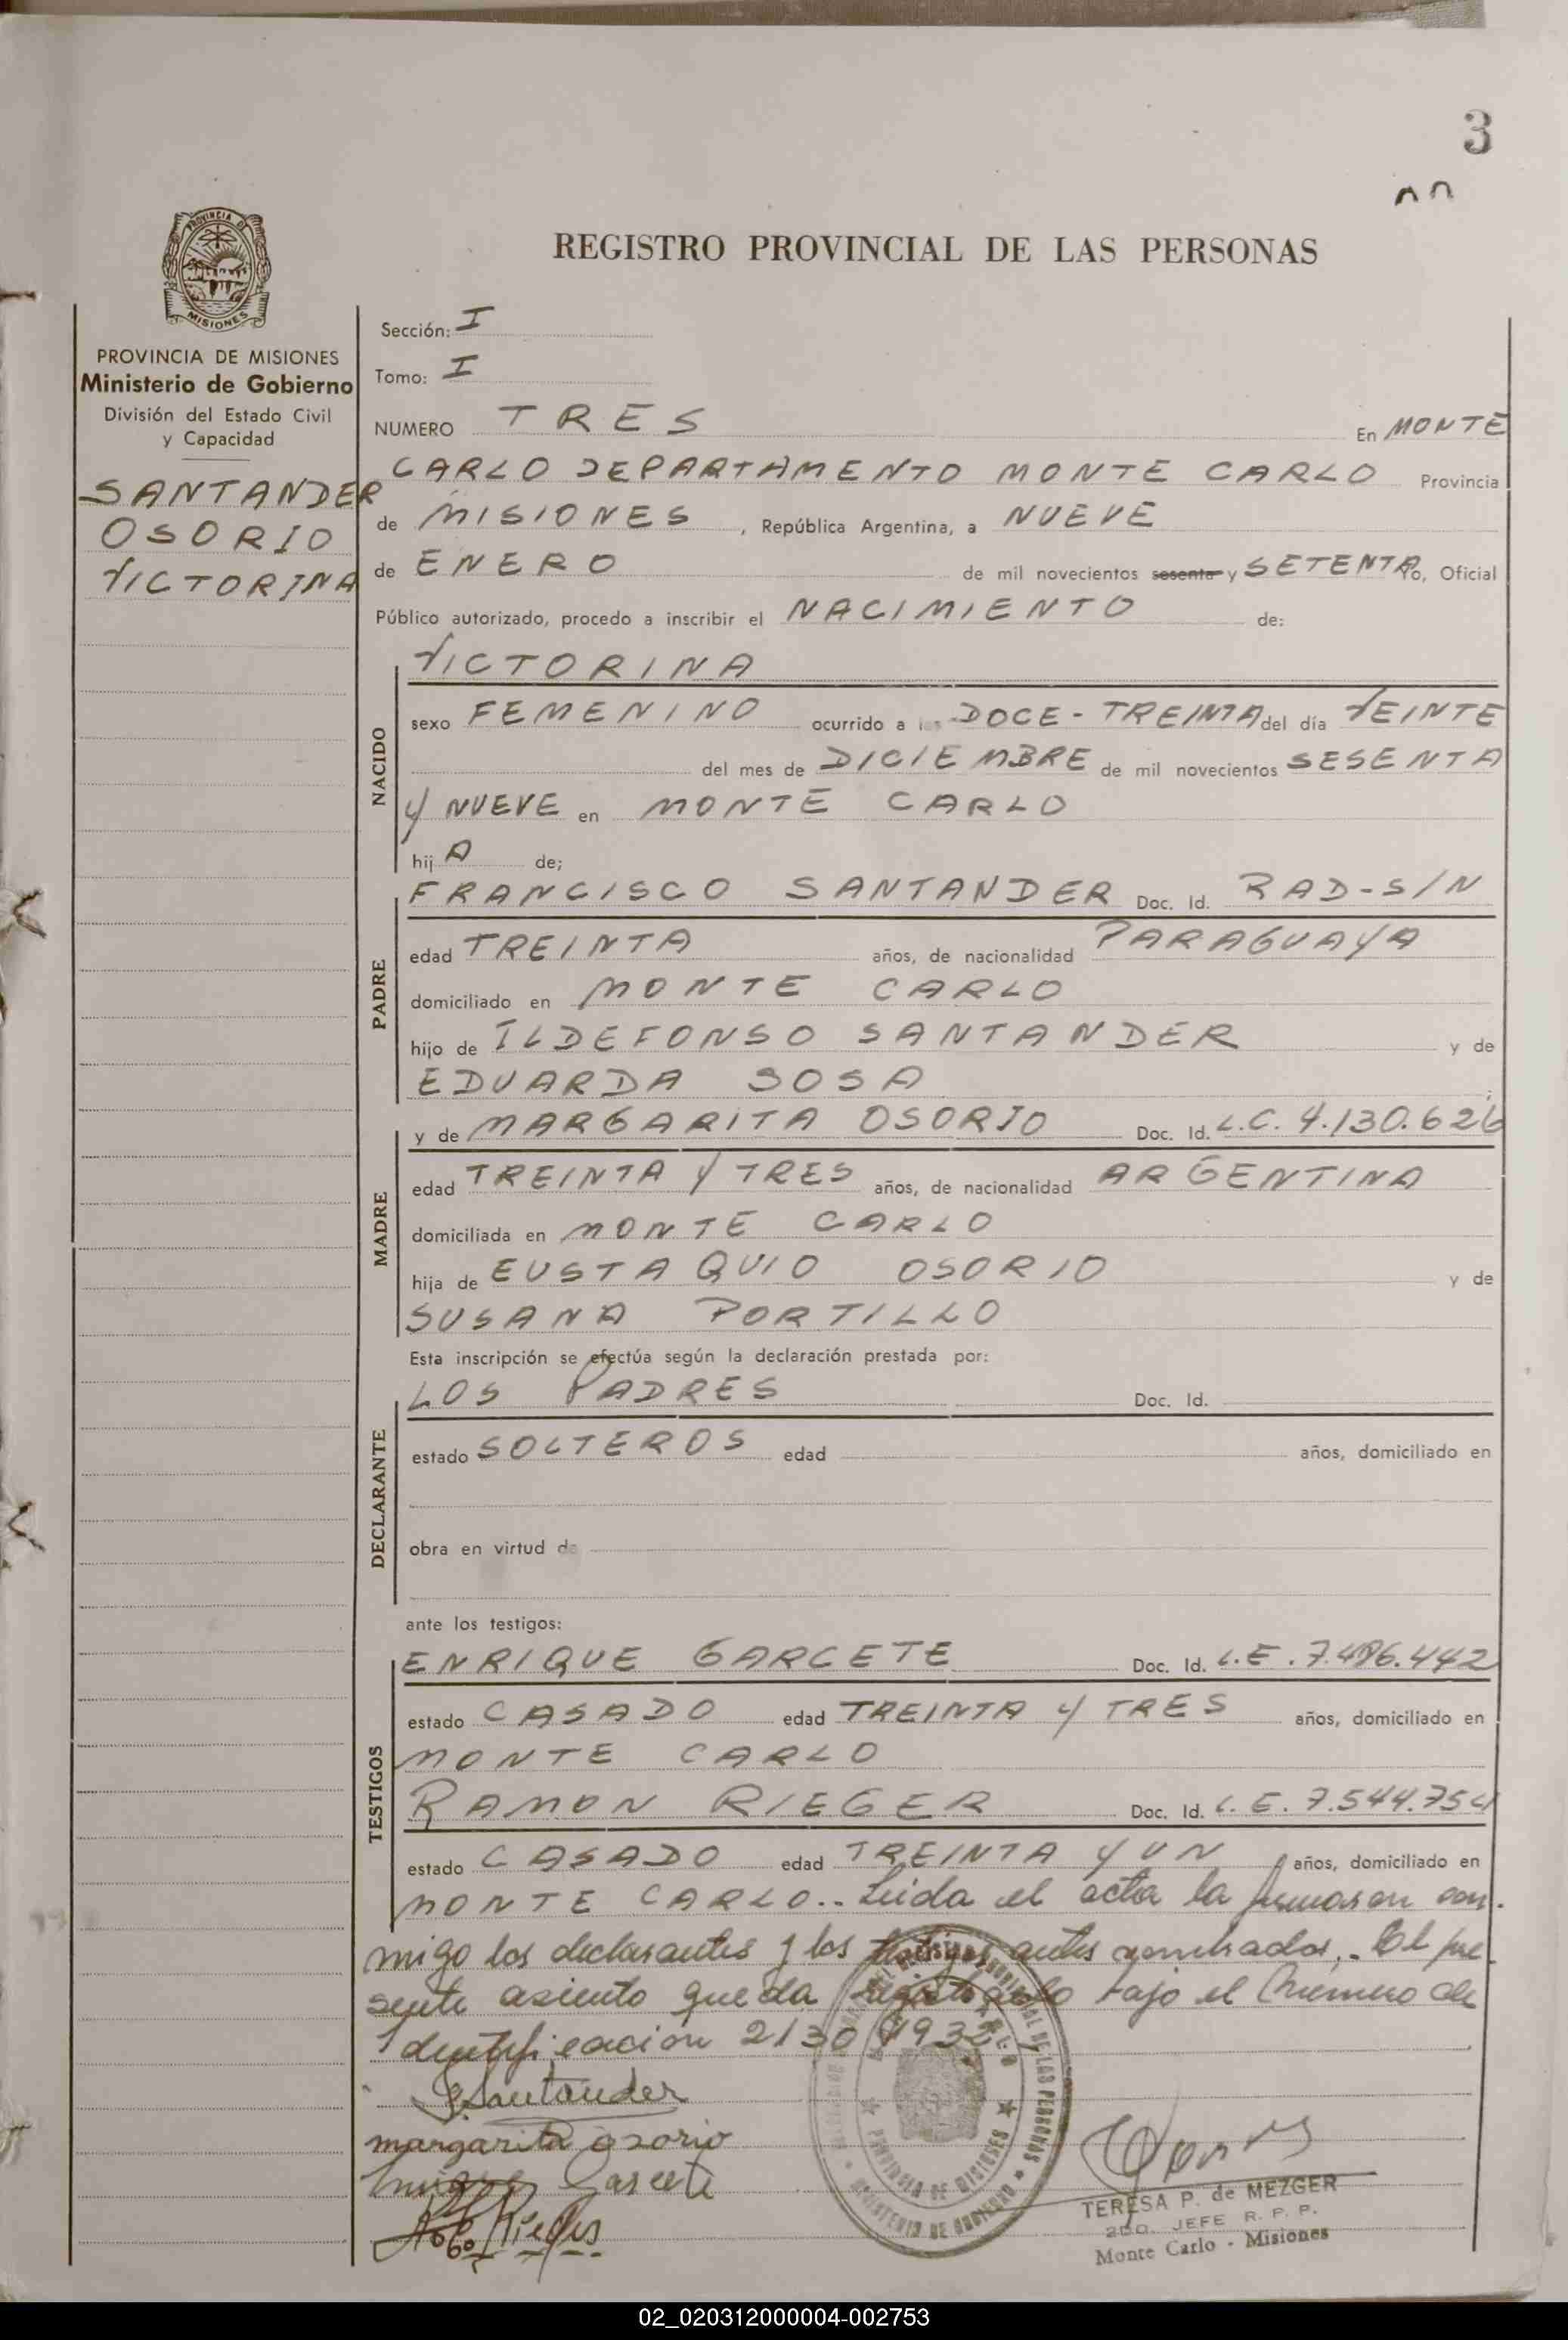 3
REGISTRO PROVINCIAL DE LAS PERSONAS
PROVINCIA DE
MISIONES
PROVINCIA DE MISIONES
Ministerio de Gobierno
División del Estado Civil
y Capacidad
SANTANDER
OSORIO
VICTORINA
Sección: I
Tomo: I
NUMERO TRES En MONTE
CARLO DEPARTAMENTO MONTE CARLO Provincia
de MISIONES, República Argentina, a NUEVE
de ENERO de mil novecientos sesenta y SETENTA Yo, Oficial
Público autorizado, procedo a inscribir el NACIMIENTO de:
NACIDO
VICTORINA
sexo FEMENINO ocurrido a las DOCE-TREINTA del día VEINTE
del mes de DICIEMBRE de mil novecientos SESENTA
Y NUEVE en MONTE CARLO
hij A de;
PADRE
FRANCISCO SANTANDER Doc. Id. RAD-S/N
edad TREINTA años, de nacionalidad PARAGUAYA
domiciliado en MONTE CARLO
hijo de ILDEFONSO SANTANDER y de
EDUARDA SOSA
MADRE
y de MARGARITA OSORIO Doc. Id. L.C. 4.130.626
edad TREINTA Y TRES años, de nacionalidad ARGENTINA
domiciliada en MONTE CARLO
hija de EUSTAQUIO OSORIO y de
SUSANA PORTILLO
Esta inscripción se efectúa según la declaración prestada por:
DECLARANTE
LOS PADRES Doc. Id.
estado SOLTEROS edad años, domiciliado en
obra en virtud de
ante los testigos:
TESTIGOS
ENRIQUE GARCETE Doc. Id. L.E. 7.496.442
estado CASADO edad TREINTA Y TRES años, domiciliado en
MONTE CARLO
RAMON RIEGER Doc. Id. L.E. 7.544.754
estado CASADO edad TREINTA Y UN años, domiciliado en
MONTE CARLO.. Leida el acta la firmaron con-
migo los declarantes y los testigos antes nombrados.. El pre-
sente asiento queda registrado bajo el Número de
Identificación 21309932
Santander
margarita osorio
Enrique Garcete
PROVINCIA DE MISIONES
MINISTERIO DE GOBIERNO
TERESA P. de MEZGER
2DO. JEFE R. P. P.
Monte Carlo - Misiones
02_020312000004-002753